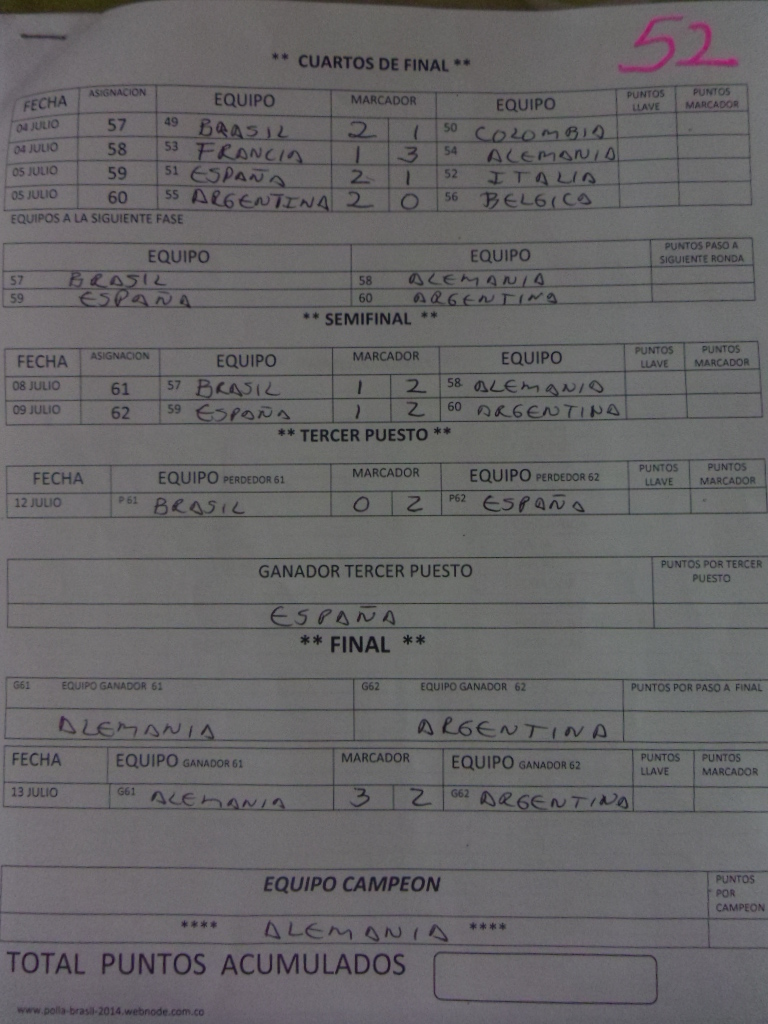 52
** CUARTOS DE FINAL **
FECHA ASIGNACION EQUIPO MARCADOR EQUIPO PUNTOS LLAVE PUNTOS MARCADOR
04 JULIO 57 49 BRASIL 2 1 50 COLOMBIA
04 JULIO 58 53 FRANCIA 1 3 54 ALEMANIA
05 JULIO 59 51 ESPAÑA 2 1 52 ITALIA
05 JULIO 60 55 ARGENTINA 2 0 56 BELGICA
EQUIPOS A LA SIGUIENTE FASE
EQUIPO EQUIPO PUNTOS PASO A SIGUIENTE RONDA
57 BRASIL 58 ALEMANIA
59 ESPAÑA 60 ARGENTINA
** SEMIFINAL **
FECHA ASIGNACION EQUIPO MARCADOR EQUIPO PUNTOS LLAVE PUNTOS MARCADOR
08 JULIO 61 57 BRASIL 1 2 58 ALEMANIA
09 JULIO 62 59 ESPAÑA 1 2 60 ARGENTINA
** TERCER PUESTO **
FECHA EQUIPO PERDEDOR 61 MARCADOR EQUIPO PERDEDOR 62 PUNTOS LLAVE PUNTOS MARCADOR
12 JULIO P 61 BRASIL 0 2 P62 ESPAÑA
GANADOR TERCER PUESTO PUNTOS POR TERCER PUESTO
ESPAÑA
** FINAL **
G61 EQUIPO GANADOR 61 G62 EQUIPO GANADOR 62 PUNTOS POR PASO A FINAL
ALEMANIA ARGENTINA
FECHA EQUIPO GANADOR 61 MARCADOR EQUIPO GANADOR 62 PUNTOS LLAVE PUNTOS MARCADOR
13 JULIO G61 ALEMANIA 3 2 G62 ARGENTINA
EQUIPO CAMPEON PUNTOS POR CAMPEON
**** ALEMANIA ****
TOTAL PUNTOS ACUMULADOS
www.polla-brasil-2014.webnode.com.co